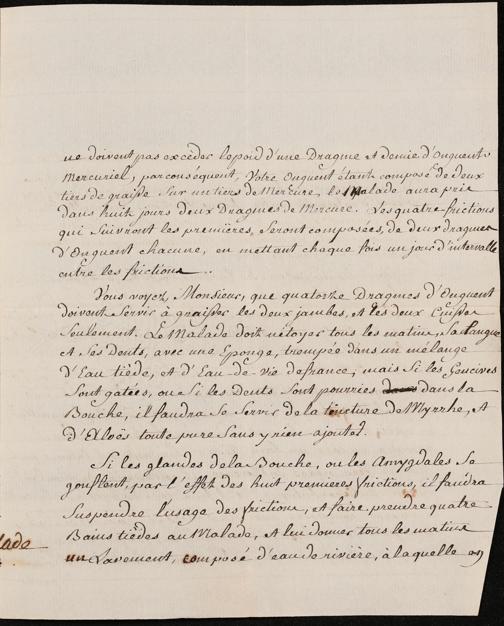 ne doivent pas excéder le poid d'une Dragme et demie d'Onguent
Mercuriel, par conséquent, Votre Onguent étant composé de deux
tiers de graisse sur un tiers de Mercure, le Malade aura pris
dans huit jours deux Dragmes de Mercure. Les quatre frictions
qui suivront les premières, seront composées, de deux dragmes
d'Onguent chacune, en mettant chaque fois un jour d'intervalle
entre les frictions..
Vous voyez, Monsieur, que quatorze Dragmes d'Onguent
doivent servir à graisser les deux jambes, et les deux Cuisses
seulement. Le Malade doit nétoyer tous les matins, sa langue
et ses Dents, avec une Eponge, trempée dans un mélange
d'Eau tiède, et d'Eau-de-vie de france, mais si les Gencives
sont gatées, ou si les Dents sont pourries dans la
Bouche, il faudra se servir de la tincture de Myrrhe, et
d'Aloës toute pure sans y rien ajouter.
Si les glandes de la Bouche, ou les Amygdales se
gonflent, par l'effet des huit premieres frictions, il faudra
suspendre l'usage des frictions, et faire prendre quatre
Bains tièdes au Malade, et lui donner tous les matins
lade
un Lavement, composé d'eau de rivière, à laquelle on